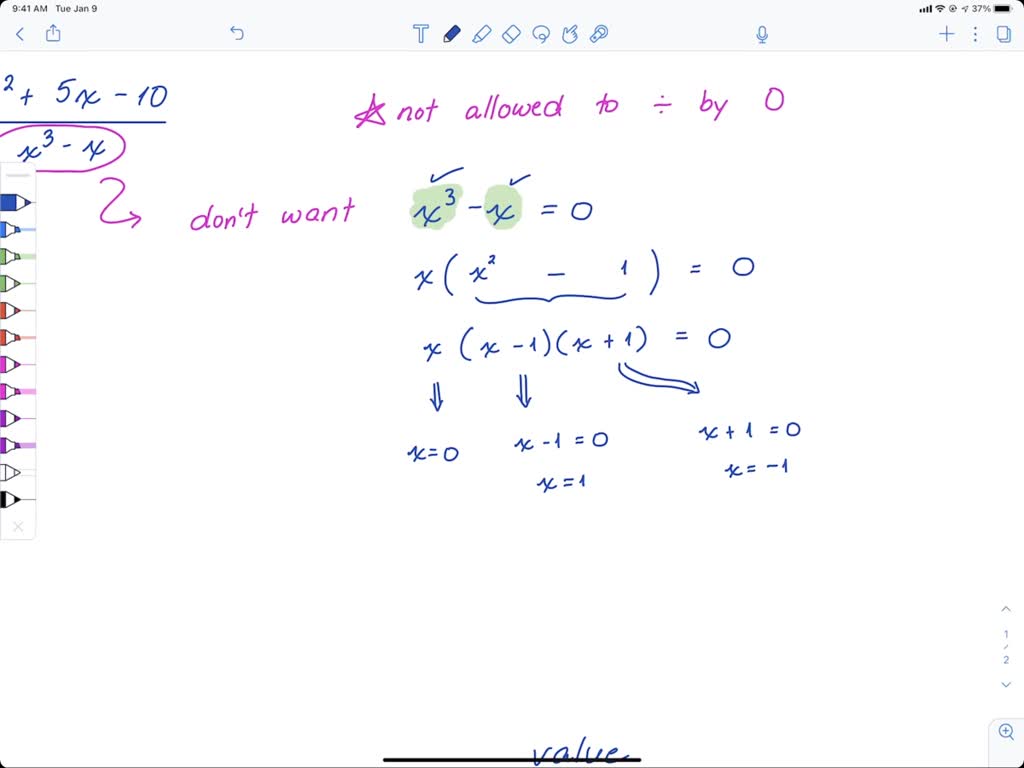 9:41 AM Tue Jan 9
37%
² + 5x - 10
x³ - x
☆ not allowed to ÷ by 0
don't want x³ - x = 0
x ( x² - 1 ) = 0
x (x - 1)(x + 1) = 0
⇓ ⇓
x = 0 x - 1 = 0 x + 1 = 0
x = 1 x = -1
1
/
2
value